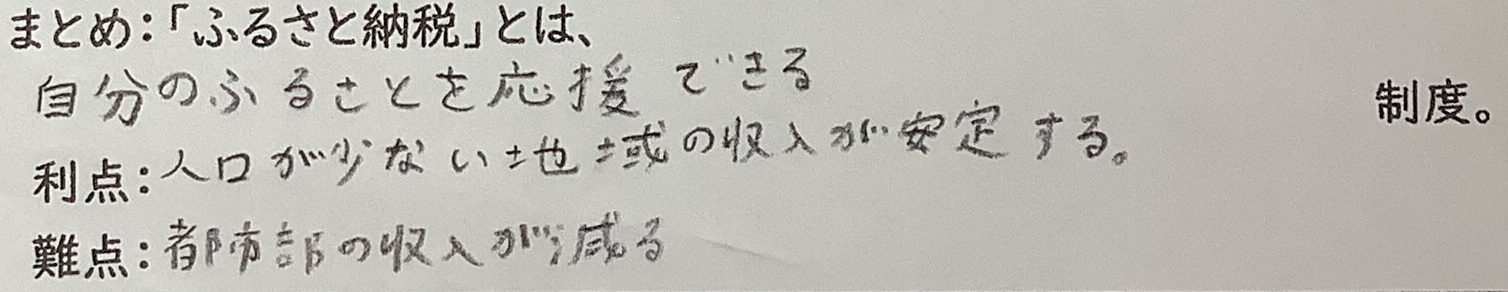 まとめ:「ふるさと納税」とは、
自分のふるさとを応援できる 制度。
利点:人口が少ない地域の収入が安定する。
難点:都市部の収入が減る